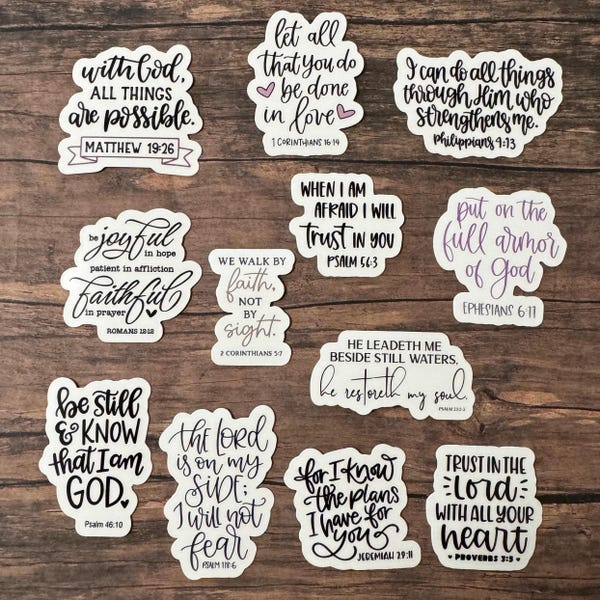 with God,
ALL THINGS
are possible.
MATTHEW 19:26
let all
that you do
be done
in love
1 CORINTHIANS 16:14
I can do all things
through Him who
strengthens me.
Philippians 4:13
be joyful in hope
patient in affliction
faithful
in prayer
ROMANS 12:12
WE WALK BY
faith,
NOT
BY
sight.
2 CORINTHIANS 5:7
WHEN I AM
AFRAID I WILL
trust IN YOU
PSALM 56:3
put on the
full armor
of God
EPHESIANS 6:11
HE LEADETH ME
BESIDE STILL WATERS,
he restoreth my soul.
PSALM 23:2-3
be still
& KNOW
that I am
GOD.
Psalm 46:10
the LORD
is on my
SIDE;
I will not
fear
PSALM 118:6
for I know
the plans
I have for
you
JEREMIAH 29:11
TRUST IN THE
LORD
WITH ALL YOUR
heart
PROVERBS 3:5